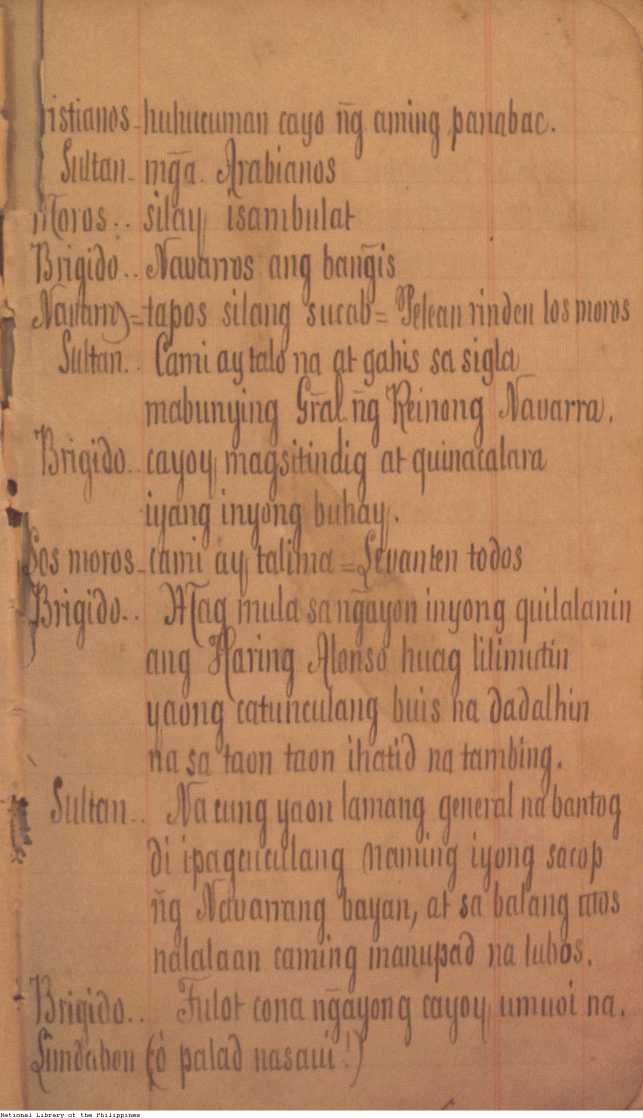 ristianos- huhucuman cayo n̄g aming panabac.
Sultan- mg̃a. Arabianos
Moros.. silay isambulat
Brigido.. Navarros ang ban̄gis
Navarros=tapos silang sucab= Pelean rinden los moros
Sultan.. Cami ay talo na at gahis sa sigla
mabunying Gral n̄g Reinong Navarra.
Brigido.. cayoy magsitindig at quinacalara
iyang inyong buhay.
Los moros- cami ay talima=Levanten todos
Brigido.. Mag mula sa n̄gayon inyong quilalanin
ang Haring Alonso huag lilimutin
yaong catunculang buis na dadalhin
na sa taon taon ihatid na tambing.
Sultan.. Na cung yaon lamang general na bantog
di ipagcuculang naming iyong sacop
n̄g Navarrang bayan, at sa balang utos
nalalaan caming manupad na lubos.
Brigido.. Tulot cona n̄gayong cayoy umuoi na.
(ò palad nasaui!)
National Library of the Philippines